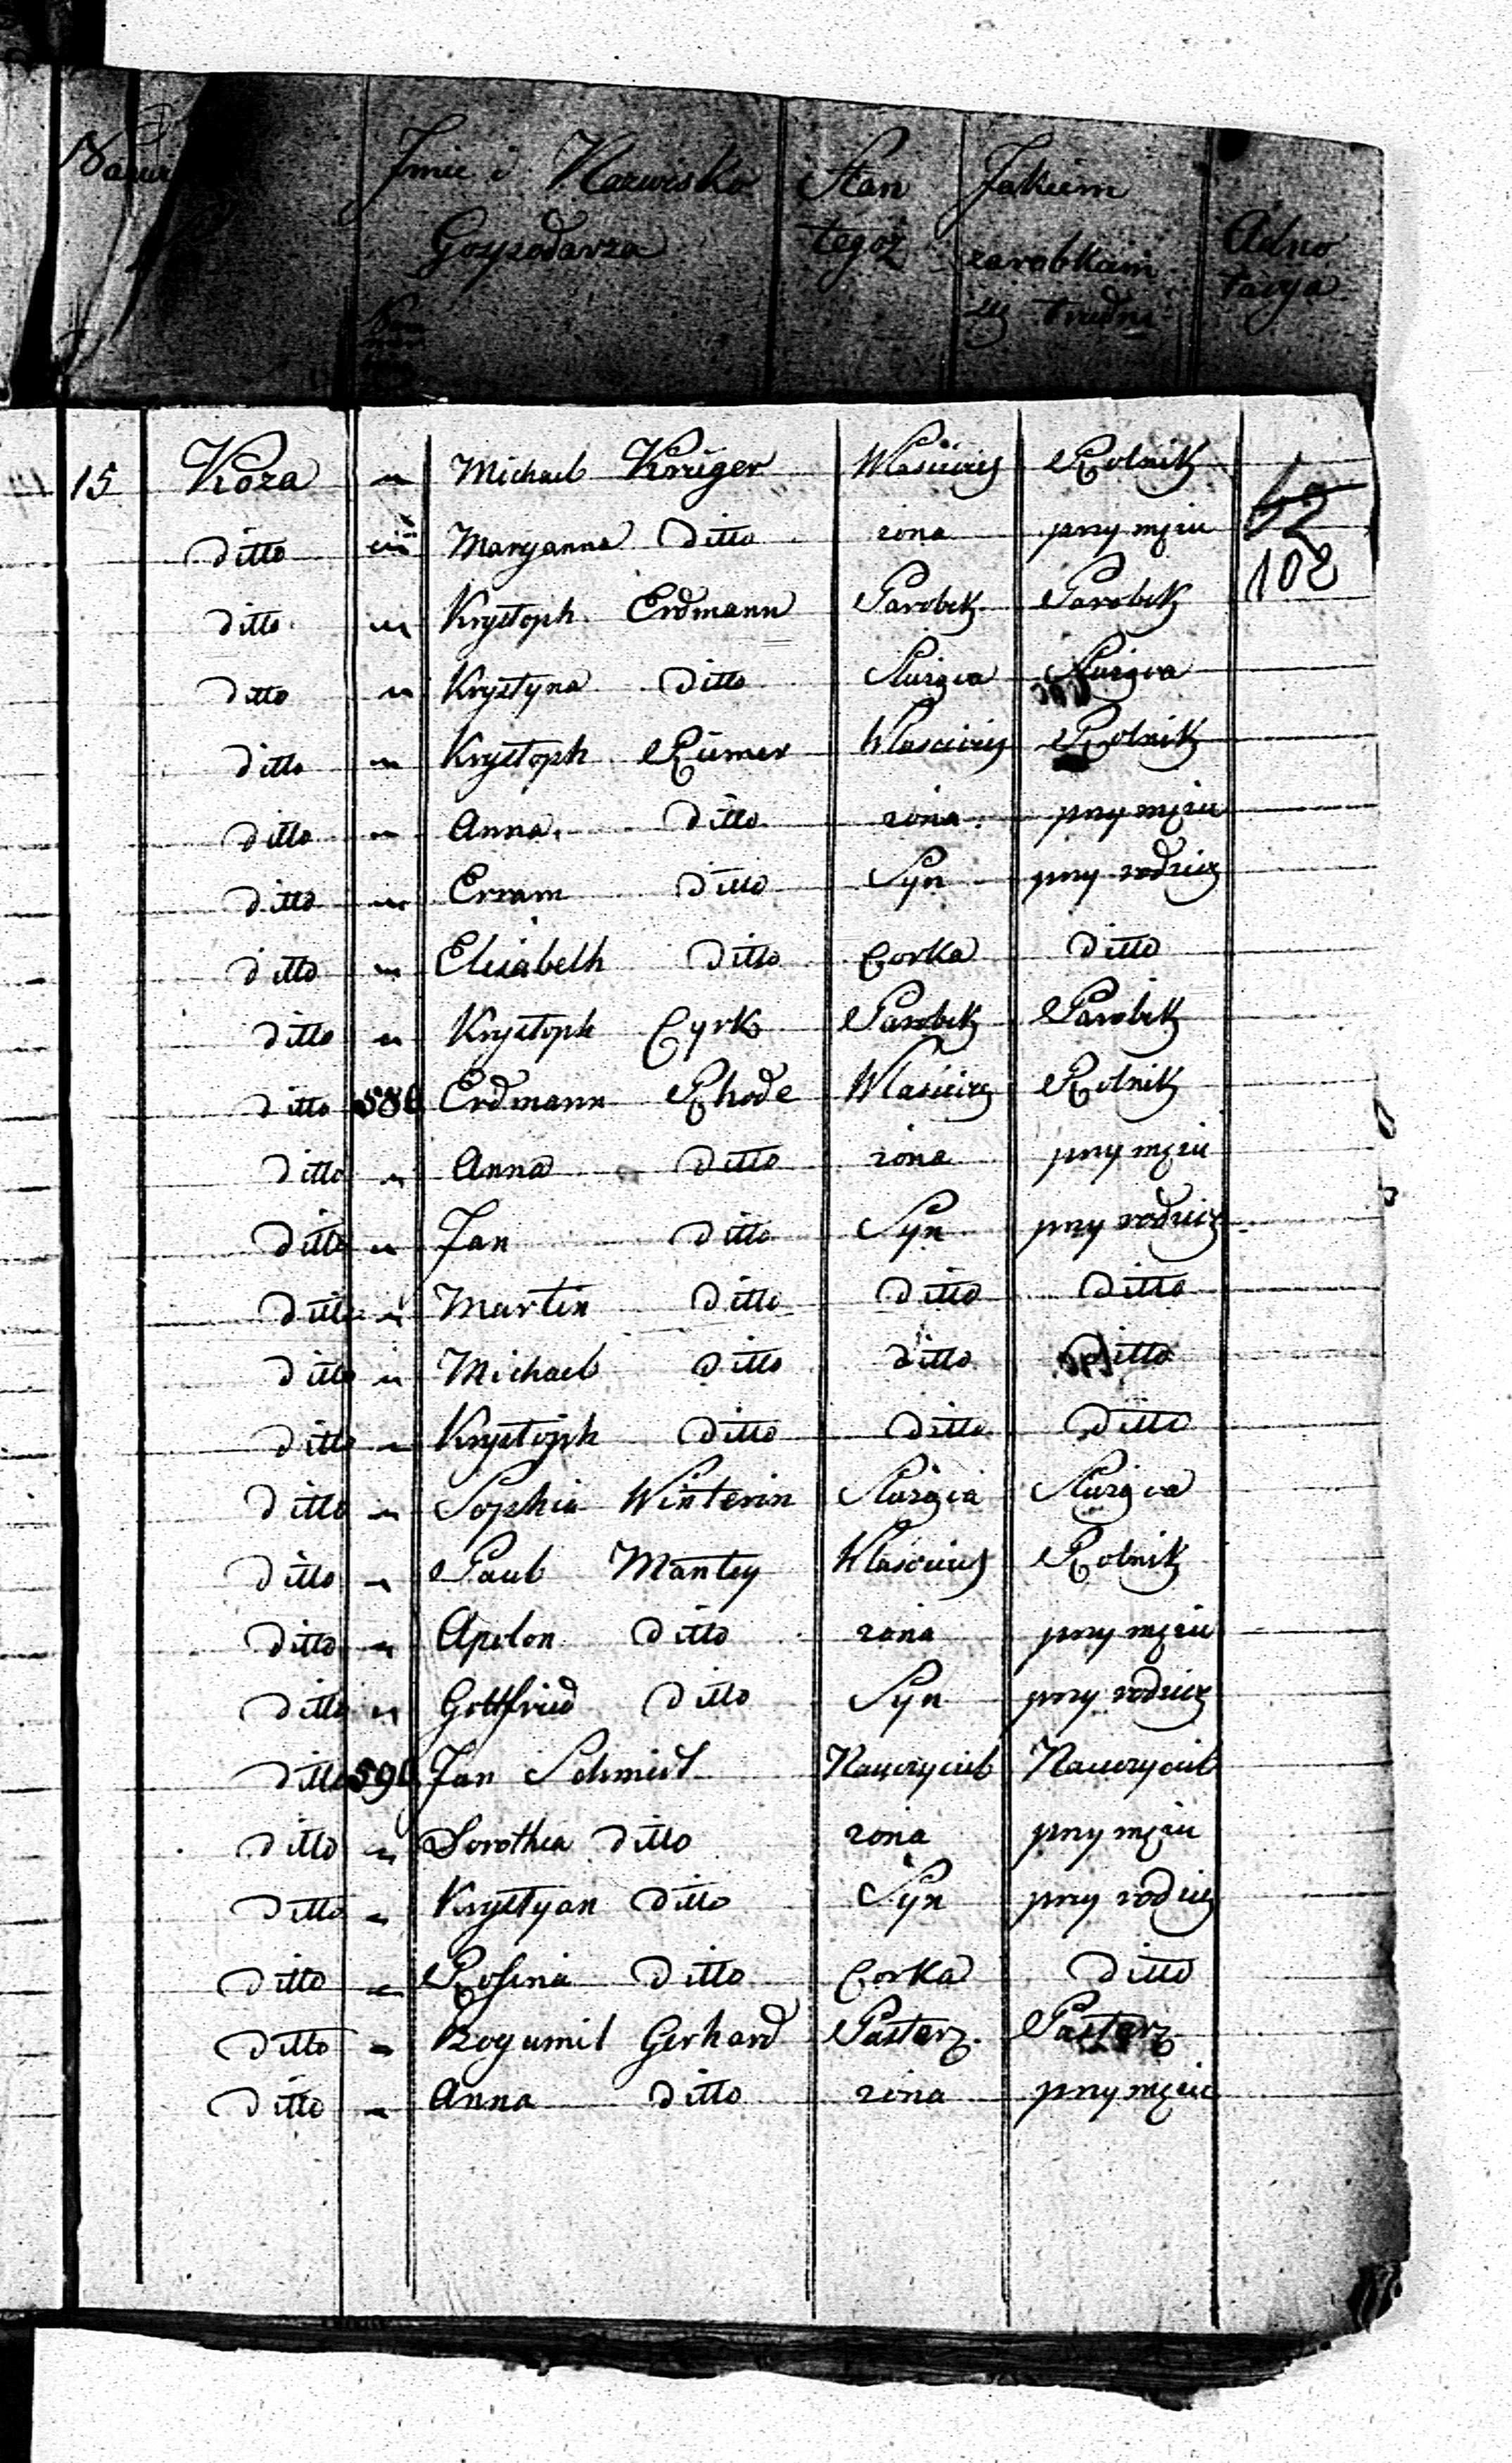 Imie i Nazwisko Gospodarza Stan tegoż Jakiem zarobkiem się trudni Adnotacya
15 Koza " Michael Krüger Własciciel Rolnik
ditto " Maryanna ditto zona przy mężu 52
102
ditto " Krystoph Erdmann Parobek Parobek
ditto " Krystyna ditto Służąca Służąca
ditto " Krystoph Rümer Własciciel Rolnik
ditto " Anna ditto zona przy mężu
ditto " Erzam ditto Syn przy rodzic
ditto " Elisabeth ditto Corka ditto
ditto " Krystoph Cyrk Parobek Parobek
ditto 580 Erdmann Rhode Własciciel Rolnik
ditto " Anna ditto zona przy mężu
ditto " Jan ditto Syn przy rodzic
ditto " Martin ditto ditto ditto
ditto " Michael ditto ditto ditto
ditto " Krystoph ditto ditto ditto
ditto " Sophia Winterin Służąca Służąca
ditto " Paul Mantey Własciciel Rolnik
ditto " Apolon ditto zona przy mężu
ditto " Gottfried ditto Syn przy rodzic
ditto 590 Jan Schmidt Nauczyciel Nauczyciel
ditto " Dorothea ditto zona przy mężu
ditto " Krystyan ditto Syn przy rodzic
ditto " Rosina ditto Corka ditto
ditto " Bogumil Gerhard Pasterz Pasterz
ditto " Anna ditto zona przy mężu